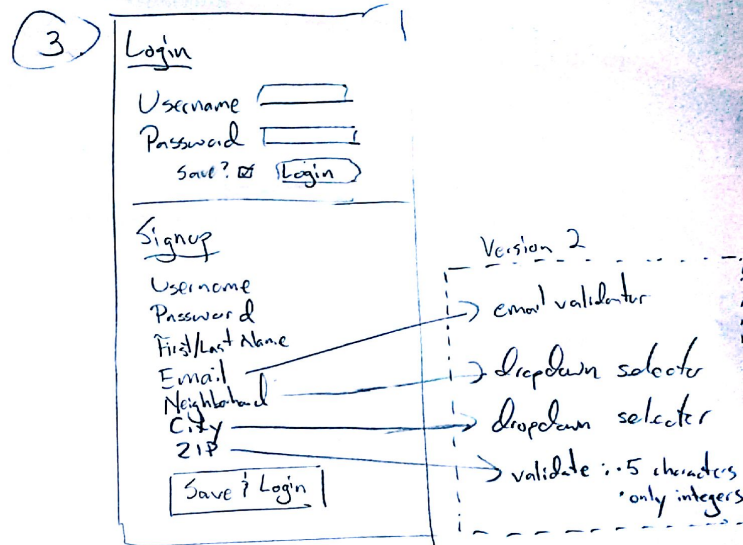 3
Login
Username
Password
Save? Login
Signup
Username
Password
First/Last Name
Email
Neighborhood
City
ZIP
Save & Login
Version 2
email validator
dropdown selector
dropdown selector
validate : · 5 characters
· only integers